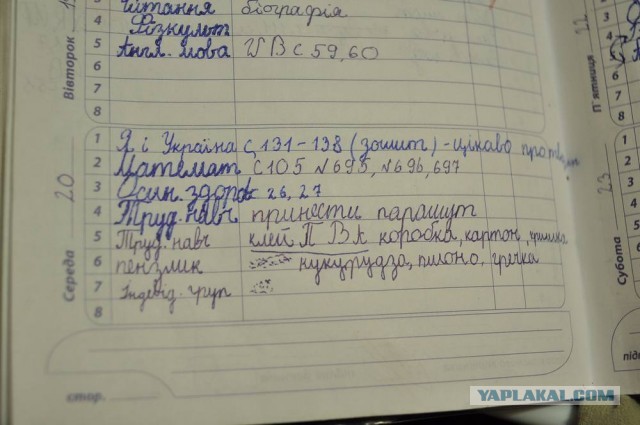 Читання біографія
Фізкульт
Вівторок
5 Англ. мова WB с 59,60
6
7
8
Середа 20
1 Я і Україна с 131-138 (зошит) - цікаво про
2 Математ с105 №695, №696, 697
3 Осн. здоров 26, 27
4 Труд. навч принести парашут
5 Труд. навч клей П В А коробка, картон,
6 пензлик кукурудза, пшоно, гречка
7 Індевід. груп
8
стор.
П'ятниця 22
4
5
6
7
8
Субота 23
1
2
3
4
5
6
7
8
YAPLAKAL.COM